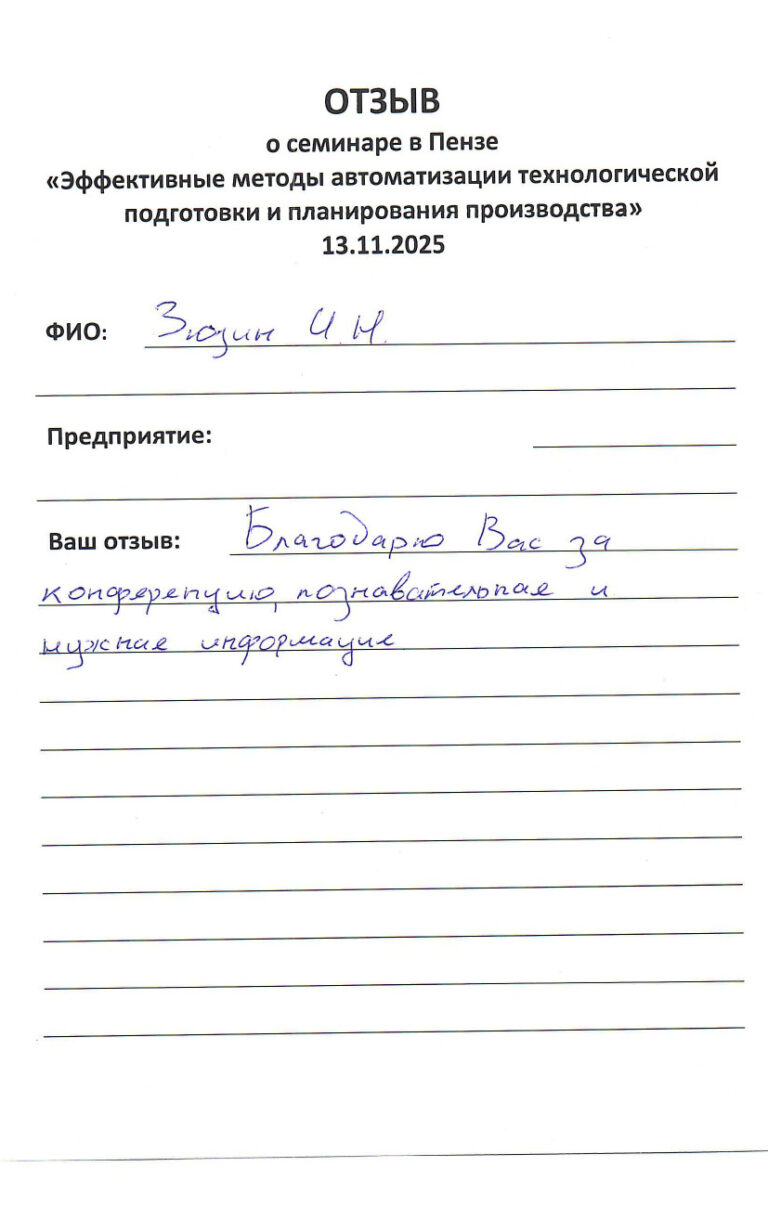 ОТЗЫВ
о семинаре в Пензе
«Эффективные методы автоматизации технологической
подготовки и планирования производства»
13.11.2025
ФИО: Зюзин И.Н.
Предприятие:
Ваш отзыв: Благодарю Вас за
конференцию, познавательная и
нужная информация